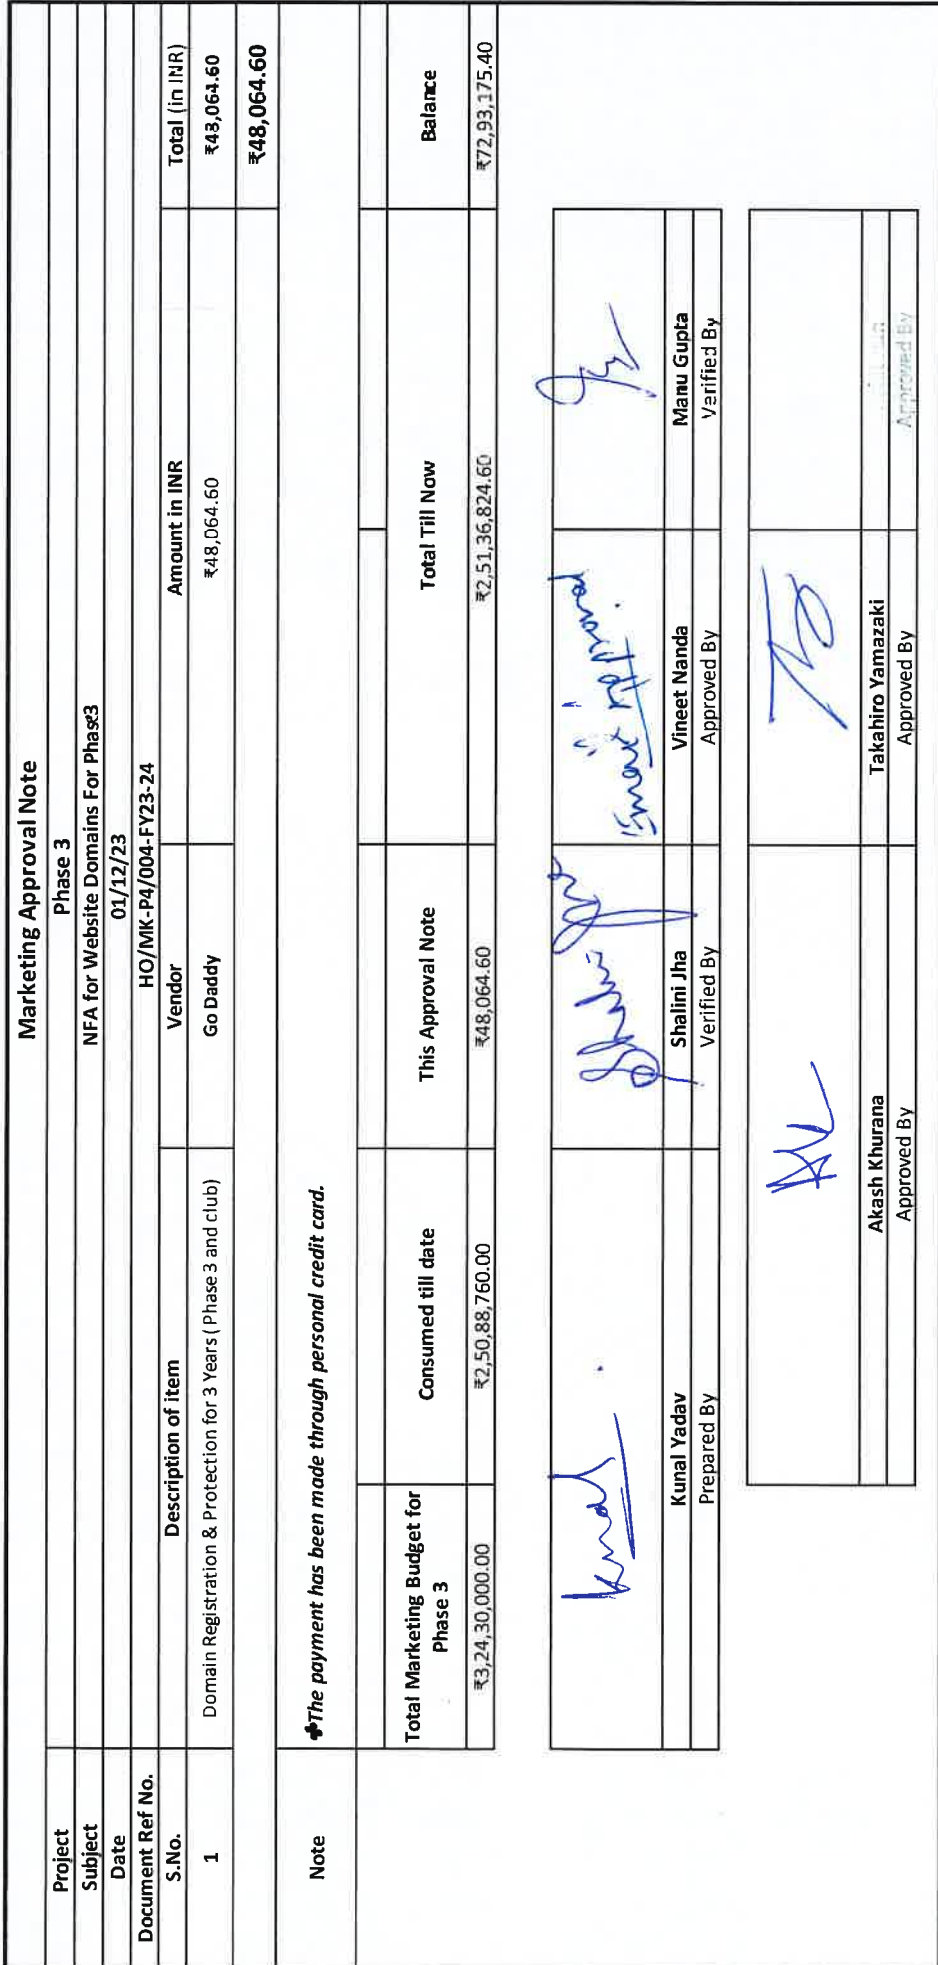 Marketing Approval Note
Project Phase 3
Subject NFA for Website Domains For Phase3
Date 01/12/23
Document Ref No. HO/MK-P4/004-FY23-24
S.No. Description of item Vendor Amount in INR Total (in INR)
1 Domain Registration & Protection for 3 Years ( Phase 3 and club) Go Daddy ₹48,064.60 ₹48,064.60
₹48,064.60
Note ♣The payment has been made through personal credit card.
Total Marketing Budget for Phase 3 Consumed till date This Approval Note Total Till Now Balance
₹3,24,30,000.00 ₹2,50,88,760.00 ₹48,064.60 ₹2,51,36,824.60 ₹72,93,175.40
Kunal Shalini Email Attached
Kunal Yadav Shalini Jha Vineet Nanda Manu Gupta
Prepared By Verified By Approved By Verified By
Akash Khurana Takahiro Yamazaki
Approved By Approved By Approved By